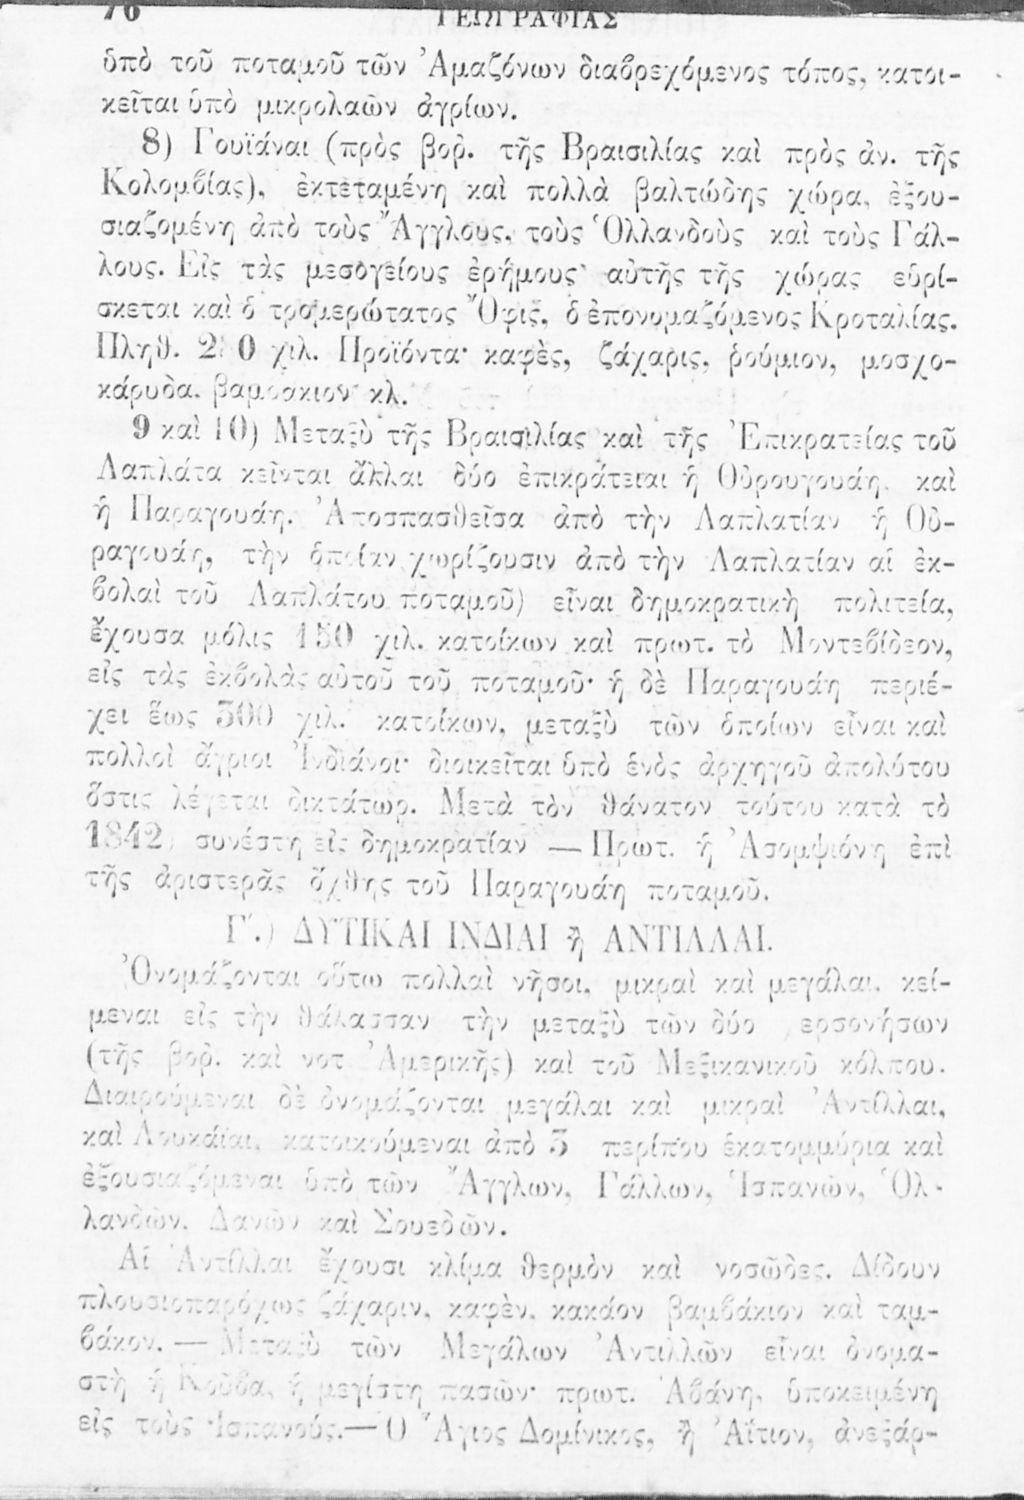 76 ΓΕΩΓΡΑΦΙΑΣ
ὑπὸ τοῦ ποταμοῦ τῶν Ἀμαζόνων διαβρεχόμενος τόπος, κατοι-
κεῖται ὑπὸ μικρολαῶν ἀγρίων.
8) Γουϊάναι (πρὸς βορ. τῆς Βραισιλίας καὶ πρὸς ἀν. τῆς
Κολομβίας), ἐκτεταμένη καὶ πολλὰ βαλτώδης χώρα, ἐξου-
σιαζομένη ἀπὸ τοὺς Ἄγγλους, τοὺς Ὁλλανδοὺς καὶ τοὺς Γάλ-
λους. Εἰς τὰς μεσογείους ἐρήμους αὐτῆς τῆς χώρας εὑρί-
σκεται καὶ ὁ τρομερώτατος Ὄφις, ὁ ἐπονομαζόμενος Κροταλίας.
Πληθ. χιλ. Προϊόντα· καφὲς, ζάχαρις, ῥούμιον, μοσχο-
κάρυδα, βαμβάκιον κλ.
9 καὶ 10) Μεταξὺ τῆς Βραισιλίας καὶ τῆς Ἐπικρατείας τοῦ
Λαπλάτα κεῖνται ἄλλαι δύο ἐπικράτειαι ἡ Οὐρουγουάη, καὶ
ἡ Παραγουάη. Ἀποσπασθεῖσα ἀπὸ τὴν Λαπλατίαν ἡ Οὐ-
ραγουάη, τὴν ὁποίαν χωρίζουσιν ἀπὸ τὴν Λαπλατίαν αἱ ἐκ-
βολαὶ τοῦ Λαπλάτου ποταμοῦ) εἶναι δημοκρατικὴ πολιτεία,
ἔχουσα μόλις 150 χιλ. κατοίκων καὶ πρωτ. τὸ Μοντεβίδεον,
εἰς τὰς ἐκβολὰς αὐτοῦ τοῦ ποταμοῦ· ἡ δὲ Παραγουάη περιέ-
χει ἕως 300 χιλ. κατοίκων, μεταξὺ τῶν ὁποίων εἶναι καὶ
πολλοὶ ἄγριοι Ἰνδιάνοι· διοικεῖται ὑπὸ ἑνὸς ἀρχηγοῦ ἀπολύτου
ὅστις λέγεται δικτάτωρ. Μετὰ τὸν θάνατον τούτου κατὰ τὸ
1842) συνέστη εἰς δημοκρατίαν — Πρωτ. ἡ Ἀσομψιόνη ἐπὶ
τῆς ἀριστερᾶς ὄχθης τοῦ Παραγουάη ποταμοῦ.
Γ΄.) ΔΥΤΙΚΑΙ ΙΝΔΙΑΙ ἢ ΑΝΤΙΛΛΑΙ.
Ὀνομάζονται οὕτω πολλαὶ νῆσοι, μικραὶ καὶ μεγάλαι, κεί-
μεναι εἰς τὴν θάλασσαν τὴν μεταξὺ τῶν δύο ερσονήσων
(τῆς βορ. καὶ νοτ Ἀμερικῆς) καὶ τοῦ Μεξικανικοῦ κόλπου.
Διαιρούμεναι δὲ ὀνομάζονται μεγάλαι καὶ μικραὶ Ἀντίλλαι,
καὶ Λουκάϊαι, κατοικούμεναι ἀπὸ 3 περίπου ἑκατομμύρια καὶ
ἐξουσιαζόμεναι ὑπὸ τῶν Ἄγγλων, Γάλλων, Ἱσπανῶν, Ὁλ-
λανδῶν, Δανῶν καὶ Σουεδῶν.
Αἱ Ἀντίλλαι ἔχουσι κλίμα θερμὸν καὶ νοσῶδες. Δίδουν
πλουσιοπαρόχως ζάχαριν, καφὲν, κακάον βαμβάκιον καὶ ταμ-
βάκον. — Μεταξὺ τῶν Μεγάλων Ἀντιλλῶν εἶναι ὀνομα-
στὴ ἡ Κοῦβα, ἡ μεγίστη πασῶν· πρωτ. Ἀβάνη, ὑποκειμένη
εἰς τοὺς Ἱσπανούς.— Ὁ Ἅγιος Δομίνικος, ἢ Ἀΐτιον, ἀνεξάρ-